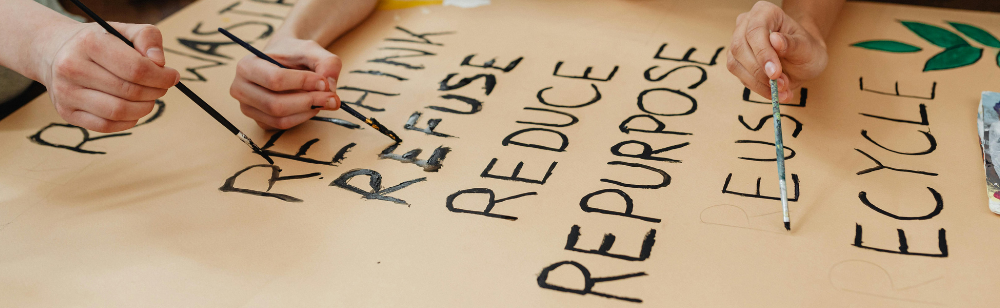 WASTE
RETHINK
REFUSE
REDUCE
REPURPOSE
REUSE
RECYCLE